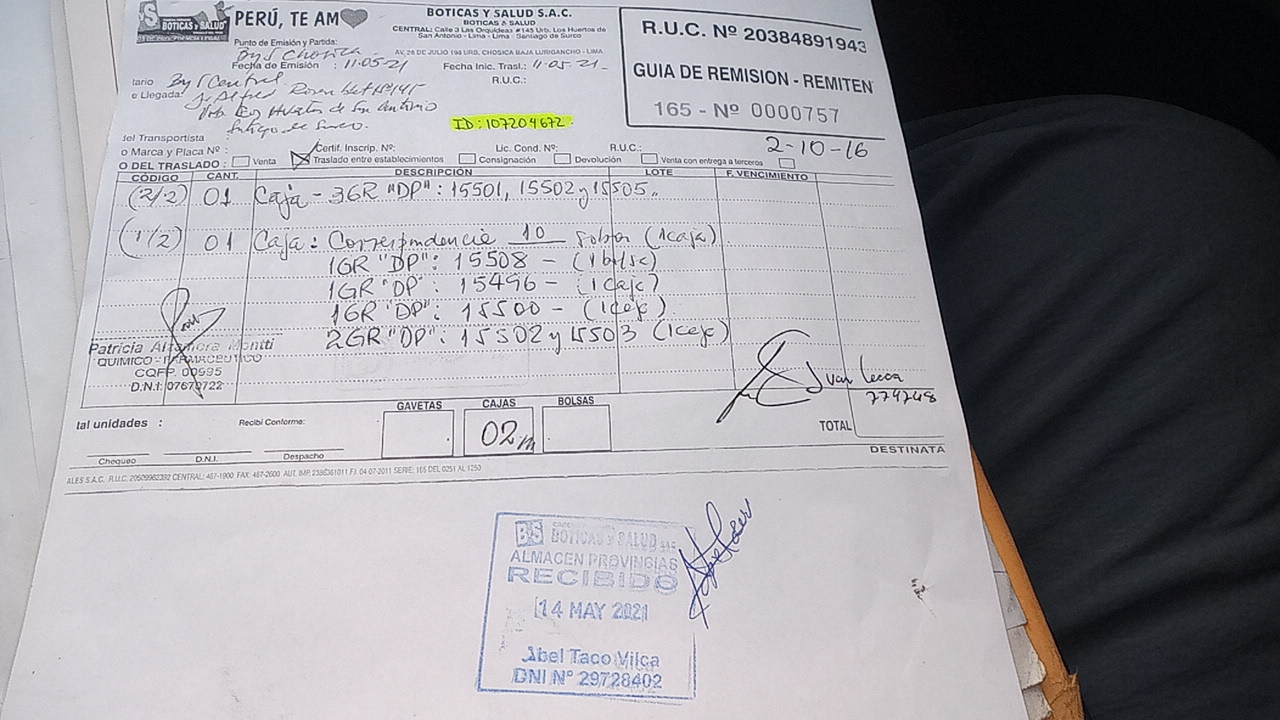 BS
BOTICAS Y SALUD
PERÚ, TE AM
BOTICAS Y SALUD S.A.C.
BOTICAS & SALUD
CENTRAL: Calle 3 Las Orquideas #145 Urb. Los Huertos de
San Antonio - Lima - Lima - Santiago de Surco
Punto de Emisión y Partida:
ByS Chosica
AV. 28 DE JULIO 198 URB, CHOSICA BAJA LURIGANCHO - LIMA
Fecha de Emisión : 11-05-21
Fecha Inic. Trasl.: 11-05-21
R.U.C. Nº 20384891943
GUIA DE REMISION - REMITEN
165 - Nº 0000757
tario ByS Central
R.U.C.:
e Llegada: Alfred Nº145
Huertos de San Antonio
Santiago de Surco.
ID: 107204672
del Transportista :
o Marca y Placa Nº :
Certif. Inscrip. Nº:
Lic. Cond. Nº:
R.U.C.:
2-10-16
O DEL TRASLADO :
Venta
Traslado entre establecimientos
Consignación
Devolución
Venta con entrega a terceros
CÓDIGO CANT. DESCRIPCIÓN LOTE F. VENCIMIENTO
(2/2) 01 Caja - 3GR "DP" : 15501, 15502 y 15505.
(1/2) 01 Caja : Correspondencia 10 sobres (1caja)
1GR "DP": 15508 - (1bolsa)
1GR "DP": 15496 - (1caja)
1GR "DP": 15500 - (1caja)
2GR "DP": 15502 y 15503 (1caja)
Patricia Montti
QUIMICO - FARMACEUTICO
CQFP. 00995
D.N.I.
Ivan Lecca
774748
tal unidades :
Recibí Conforme:
GAVETAS CAJAS BOLSAS
02
TOTAL
Chequeo D.N.I. Despacho
DESTINATA
ALES S.A.C. R.U.C. 20509962392 CENTRAL: 467-1900 FAX: 467-2600 AUT. IMP. F.I. 04 07-2011 SERIE: 165 DEL 0251 AL 1250
BS BOTICAS Y SALUD SAC
ALMACEN PROVINCIAS
RECIBIDO
14 MAY 2021
Abel Taco Vilca
DNI Nº 29728402